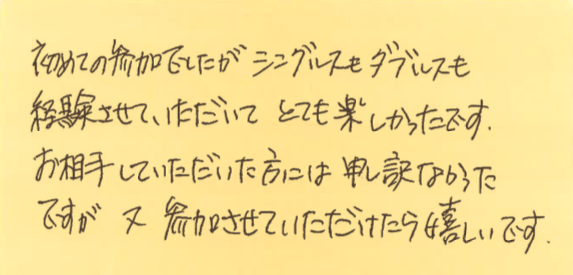 初めての参加でしたが シングルスもダブルスも
経験させて、いただいて とても楽しかったです.
お相手していただいた方には 申し訳なかった
ですが 又 参加させていただけたら嬉しいです.